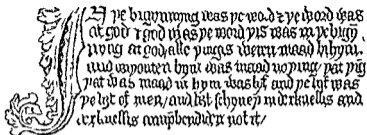 IN þe bigynnyng was þe word & þe word was
at god & god was þe word þis was in þe bigyn
nyng at god / alle þingis weren maad bi hym
and wiþouten hym was maad no þing / þat þing
þat was maad in hym was lyf and þe lyf was
þe lyȝt of men / and lyȝt schyneþ in derknessis and
derknessis comprehendiden not it /